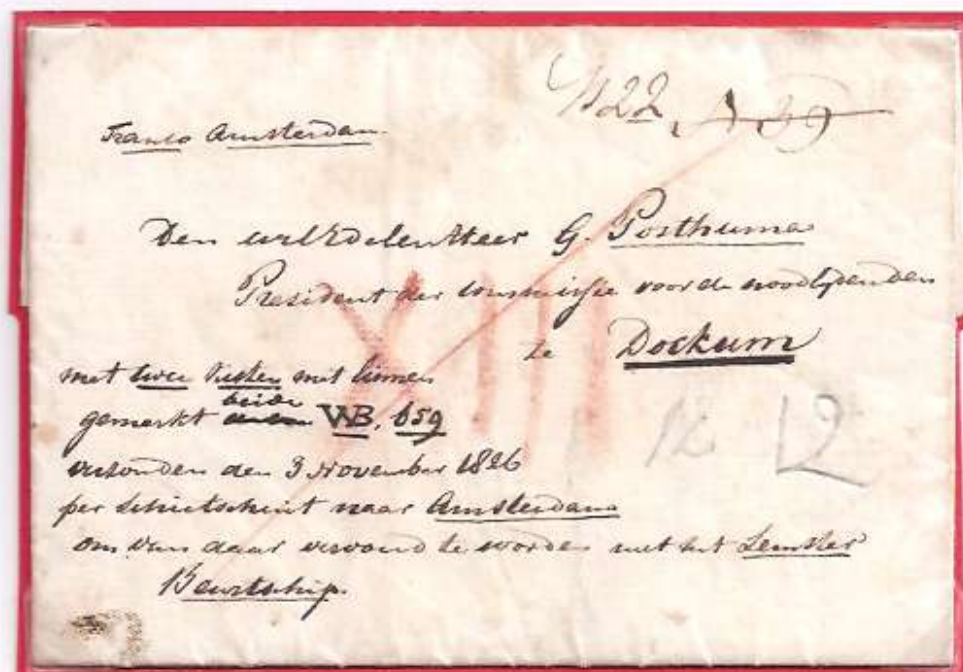 № 22
Franco Amsterdam.
Den WelEdelen Heer G. Posthuma
President der Commissie voor de noodlydenden
te Dockum
met twee kisten met linnen
gemerkt beide WB, 659
verzonden den 3 November 1826
per schietschuit naar Amsterdam
om van daar vervoerd te worden met het Lemster
Beurtschip.
XIII
12 12